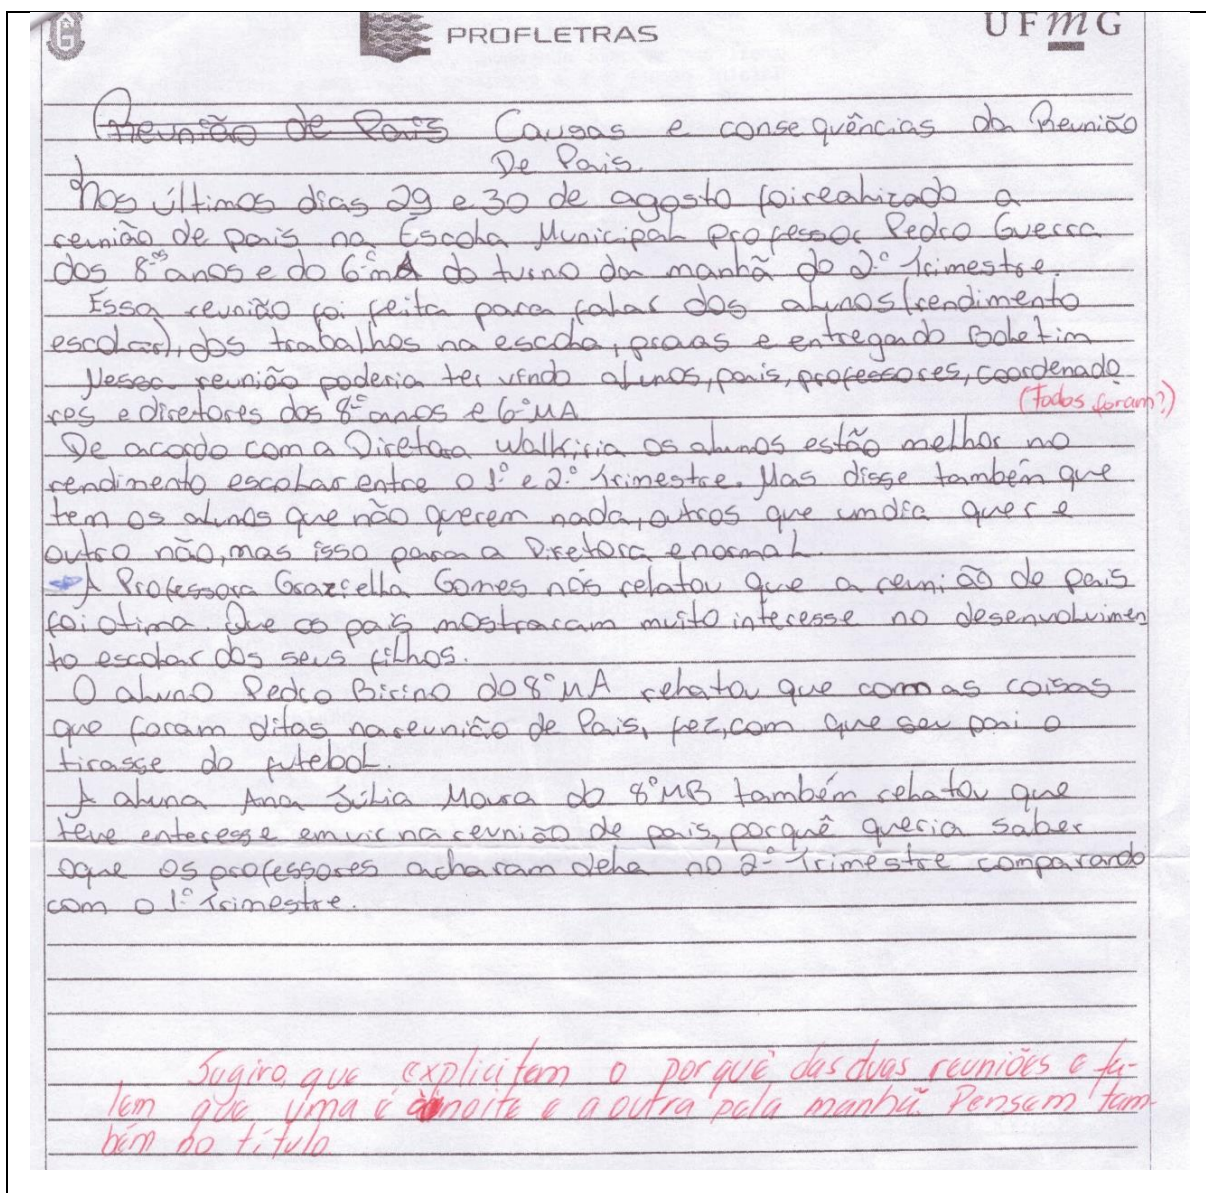 PROFLETRAS
UFMG
Reunião de Pais Causas e consequências da Reunião
De Pais.
Nos últimos dias 29 e 30 de agosto foirealizado a
reunião de pais na Escola Municipal professor Pedro Guerra
dos 8ºs anos e do 6ºmA do turno da manhã do 2º Trimestre.
Essa reunião foi feita para falar dos alunos (rendimento
escolar), dos trabalhos na escola, provas e entregado Boletim
Nessa reunião poderia ter vindo alunos, pais, professores, coordenado
res e diretores dos 8º anos e 6ºMA
(Todos foram?)
De acordo com a Diretora Walkiria os alunos estão melhor no
rendimento escolar entre o 1º e 2º Trimestre. Mas disse também que
tem os alunos que não querem nada, outros que umdia quer e
outro não, mas isso para a Diretora enormal.
A Professora Grazcella Gomes nós relatou que a reunião de pais
foi otima. Que os pais mostraram muito interesse no desenvolvimen
to escolar dos seus filhos.
O aluno Pedro Birino do 8ºMA relatou que com as coisas
que foram ditas nareunião de Pais, fez, com que seu pai o
tirasse do futebol.
A aluna Ana Júlia Moura do 8ºMB também relatou que
teve enteresse emvir na reunião de pais, porquê queria saber
oque os professores acharam dela no 2º Trimestre comparando
com o 1º Trimestre.
Sugiro que explicitem o porquê das duas reuniões e fa-
lem que uma é à noite e a outra pela manhã. Pensem tam-
bém no título.